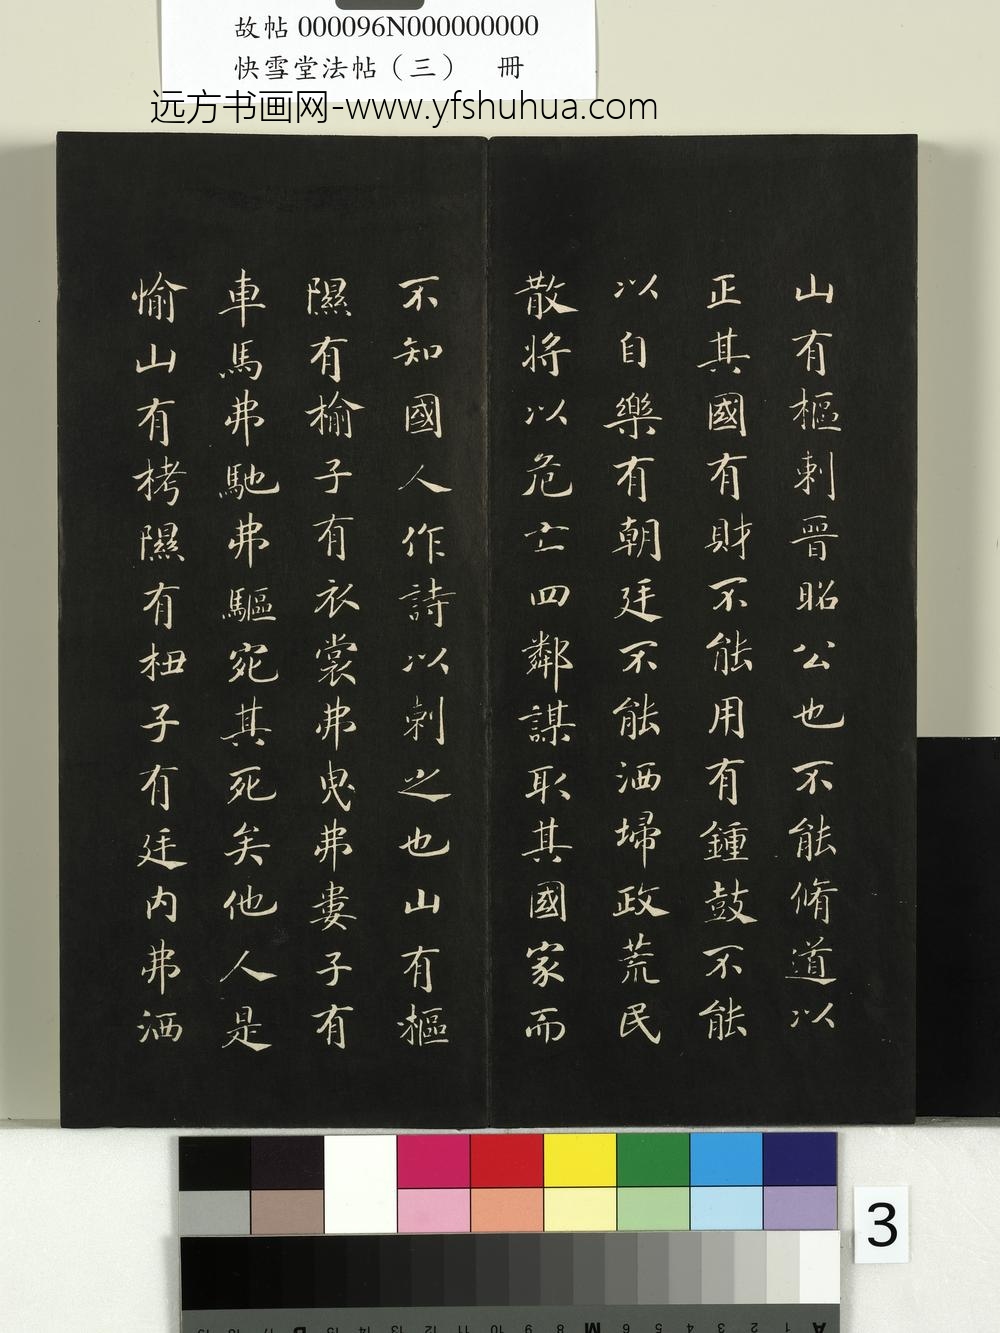 故帖 000096N000000000
快雪堂法帖（三） 冊
远方书画网-www.yfshuhua.com
山有樞刺晉昭公也不能脩道以
正其國有財不能用有鍾鼓不能
以自樂有朝廷不能洒埽政荒民
散將以危亡四鄰謀取其國家而
不知國人作詩以刺之也山有樞
隰有榆子有衣裳弗曳弗婁子有
車馬弗馳弗驅宛其死矣他人是
愉山有栲隰有杻子有廷内弗洒
3